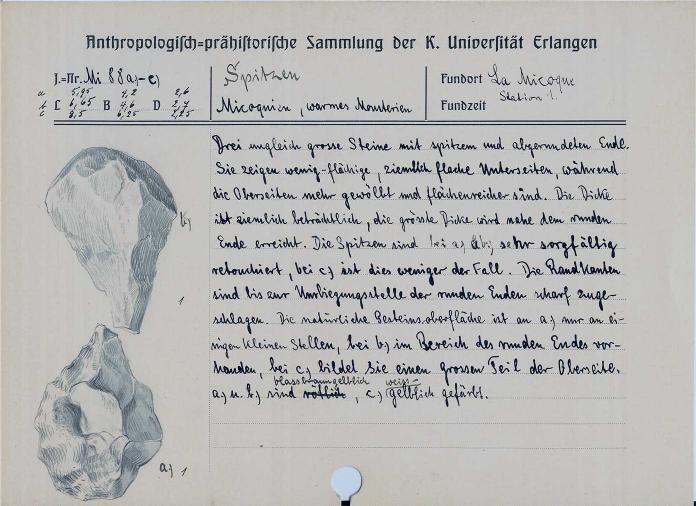 Anthropologisch=prähistorische Sammlung der K. Universität Erlangen
J.=Nr. Mi 88 a)-c)
a 5,95 4,2 2,6
b L 6,65 B 4,6 D 2,7
c 8,5 6,25 2,25
Spitzen
Micoquien, warmes Mousterien
Fundort La Micoque
Fundzeit Station 1.
Drei ungleich grosse Steine mit spitzem und abgerundeten Ende.
Sie zeigen wenig-flächige, ziemlich flache Unterseiten, während
die Oberseiten mehr gewölbt und flächenreicher sind. Die Dicke
ist ziemlich beträchtlich, die grösste Dicke wird nahe dem runden
Ende erreicht. Die Spitzen sind bei a) & b) sehr sorgfältig
retouchiert, bei c) ist dies weniger der Fall. Die Randkanten
sind bis zur Umbiegungsstelle der runden Enden scharf zuge-
schlagen. Die natürliche Gesteinsoberfläche ist an a) nur an ei-
nigen kleinen Stellen, bei b) im Bereich des runden Endes vor-
handen, bei c) bildet sie einen grossen Teil der Oberseite.
blassbraungelblich weiss-
a) u. b) sind rötlich, c) gelblich gefärbt.
b)
1
a) 1